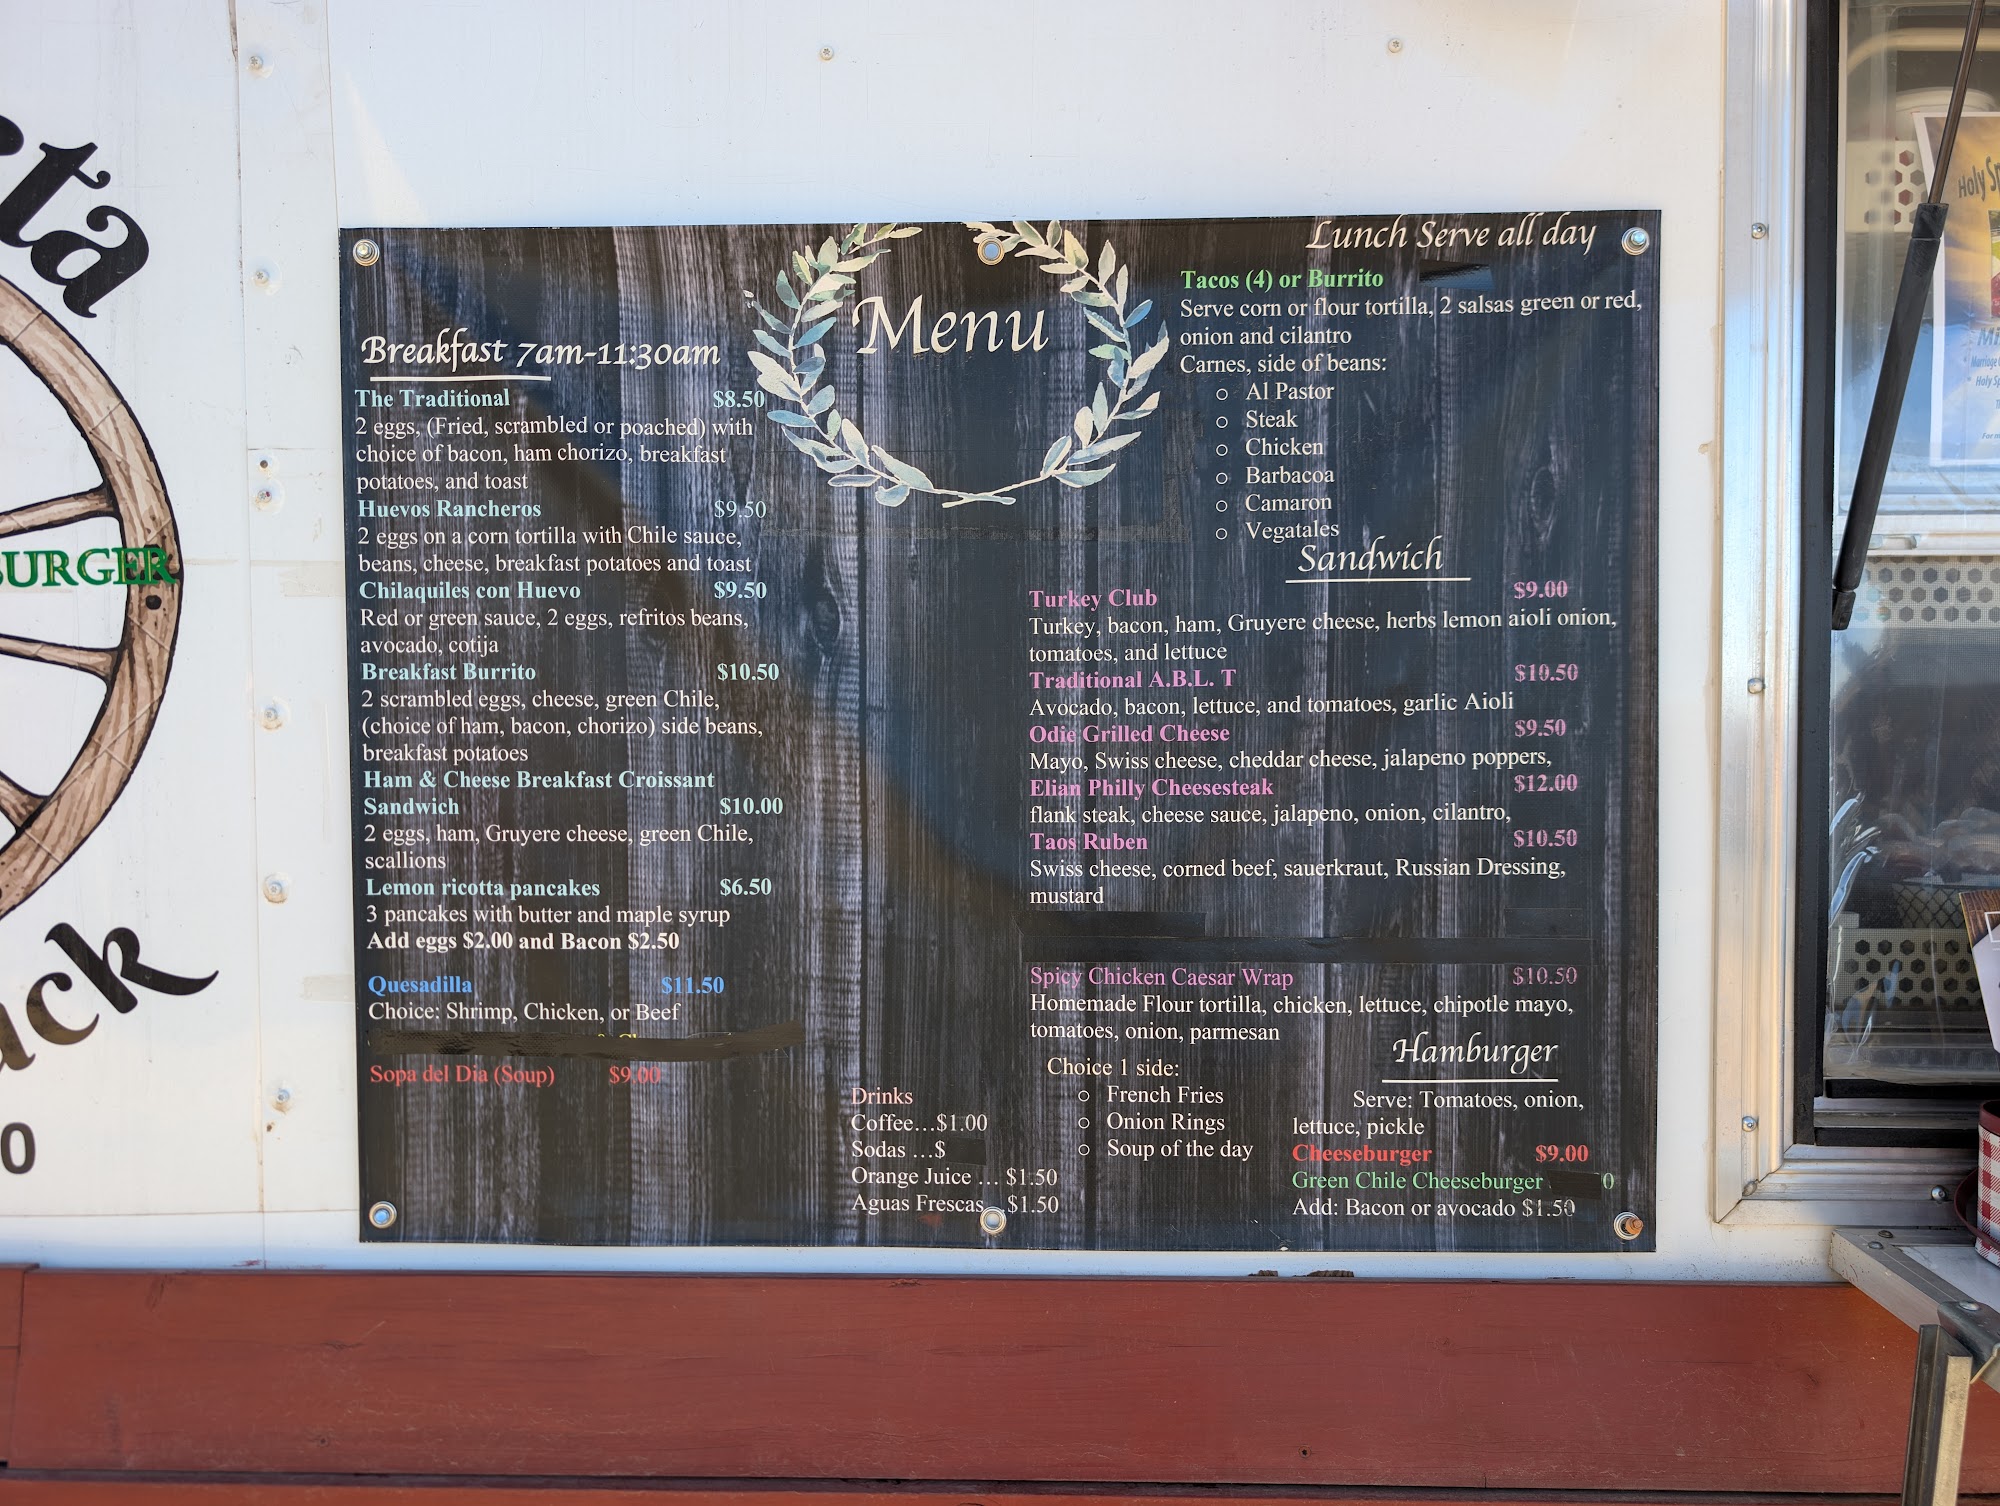 BURGER
Menu
Breakfast 7am-11:30am
The Traditional $8.50
2 eggs, (Fried, scrambled or poached) with
choice of bacon, ham chorizo, breakfast
potatoes, and toast
Huevos Rancheros $9.50
2 eggs on a corn tortilla with Chile sauce,
beans, cheese, breakfast potatoes and toast
Chilaquiles con Huevo $9.50
Red or green sauce, 2 eggs, refritos beans,
avocado, cotija
Breakfast Burrito $10.50
2 scrambled eggs, cheese, green Chile,
(choice of ham, bacon, chorizo) side beans,
breakfast potatoes
Ham & Cheese Breakfast Croissant
Sandwich $10.00
2 eggs, ham, Gruyere cheese, green Chile,
scallions
Lemon ricotta pancakes $6.50
3 pancakes with butter and maple syrup
Add eggs $2.00 and Bacon $2.50
Quesadilla $11.50
Choice: Shrimp, Chicken, or Beef
Sopa del Dia (Soup) $9.00
Drinks
Coffee...$1.00
Sodas ...$
Orange Juice ... $1.50
Aguas Frescas...$1.50
Lunch Serve all day
Tacos (4) or Burrito
Serve corn or flour tortilla, 2 salsas green or red,
onion and cilantro
Carnes, side of beans:
o Al Pastor
o Steak
o Chicken
o Barbacoa
o Camaron
o Vegatales
Sandwich
Turkey Club $9.00
Turkey, bacon, ham, Gruyere cheese, herbs lemon aioli onion,
tomatoes, and lettuce
Traditional A.B.L. T $10.50
Avocado, bacon, lettuce, and tomatoes, garlic Aioli
Odie Grilled Cheese $9.50
Mayo, Swiss cheese, cheddar cheese, jalapeno poppers,
Elian Philly Cheesesteak $12.00
flank steak, cheese sauce, jalapeno, onion, cilantro,
Taos Ruben $10.50
Swiss cheese, corned beef, sauerkraut, Russian Dressing,
mustard
Spicy Chicken Caesar Wrap $10.50
Homemade Flour tortilla, chicken, lettuce, chipotle mayo,
tomatoes, onion, parmesan
Choice 1 side:
o French Fries
o Onion Rings
o Soup of the day
Hamburger
Serve: Tomatoes, onion,
lettuce, pickle
Cheeseburger $9.00
Green Chile Cheeseburger 0
Add: Bacon or avocado $1.50
0
Holy